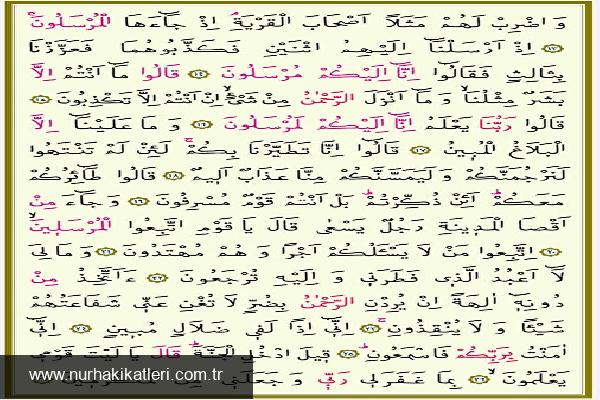 وَ اضْرِبْ لَهُمْ مَثَلًا اَصْحَابَ الْقَرْيَةِۘ اِذْ جَٓاءَهَا الْمُرْسَلُونَۚ
﴿١٣﴾ اِذْ اَرْسَلْنَٓا اِلَيْهِمُ اثْنَيْنِ فَكَذَّبُوهُمَا فَعَزَّزْنَا
بِثَالِثٍ فَقَالُٓوا اِنَّٓا اِلَيْكُمْ مُرْسَلُونَ ﴿١٤﴾ قَالُوا مَٓا اَنْتُمْ اِلَّا
بَشَرٌ مِثْلُنَاۙ وَ مَٓا اَنْزَلَ الرَّحْمٰنُ مِنْ شَيْءٍۙ اِنْ اَنْتُمْ اِلَّا تَكْذِبُونَ ﴿١٥﴾
قَالُوا رَبُّنَا يَعْلَمُ اِنَّٓا اِلَيْكُمْ لَمُرْسَلُونَ ﴿١٦﴾ وَ مَا عَلَيْنَٓا اِلَّا
الْبَلَاغُ الْمُبِينُ ﴿١٧﴾ قَالُٓوا اِنَّا تَطَيَّرْنَا بِكُمْۚ لَئِنْ لَمْ تَنْتَهُوا
لَنَرْجُمَنَّكُمْ وَ لَيَمَسَّنَّكُمْ مِنَّا عَذَابٌ اَلِيمٌ ﴿١٨﴾ قَالُوا طَٓائِرُكُمْ
مَعَكُمْۜ اَئِنْ ذُكِّرْتُمْۜ بَلْ اَنْتُمْ قَوْمٌ مُسْرِفُونَ ﴿١٩﴾ وَ جَٓاءَ مِنْ
اَقْصَا الْمَدِينَةِ رَجُلٌ يَسْعٰى قَالَ يَا قَوْمِ اتَّبِعُوا الْمُرْسَلِينَۙ
﴿٢٠﴾ اِتَّبِعُوا مَنْ لَا يَسْـَٔلُكُمْ اَجْرًا وَ هُمْ مُهْتَدُونَ ﴿٢١﴾ وَ مَا لِيَ
لَٓا اَعْبُدُ الَّذِى فَطَرَنِى وَ اِلَيْهِ تُرْجَعُونَ ﴿٢٢﴾ ءَاَتَّخِذُ مِنْ
دُونِهِٓ اٰلِهَةً اِنْ يُرِدْنِ الرَّحْمٰنُ بِضُرٍّ لَا تُغْنِ عَنِّى شَفَاعَتُهُمْ
شَيْـًٔا وَ لَا يُنْقِذُونِۚ ﴿٢٣﴾ اِنِّٓى اِذًا لَفِى ضَلَالٍ مُبِينٍ ﴿٢٤﴾ اِنِّٓى
اٰمَنْتُ بِرَبِّكُمْ فَاسْمَعُونِۜ ﴿٢٥﴾ قِيلَ ادْخُلِ الْجَنَّةَۜ قَالَ يَا لَيْتَ قَوْمِى
يَعْلَمُونَۙ ﴿٢٦﴾ بِمَا غَفَرَلِى رَبِّى وَ جَعَلَنِى مِنَ الْمُكْرَمِينَ ﴿٢٧﴾
www.nurhakikatleri.com.tr